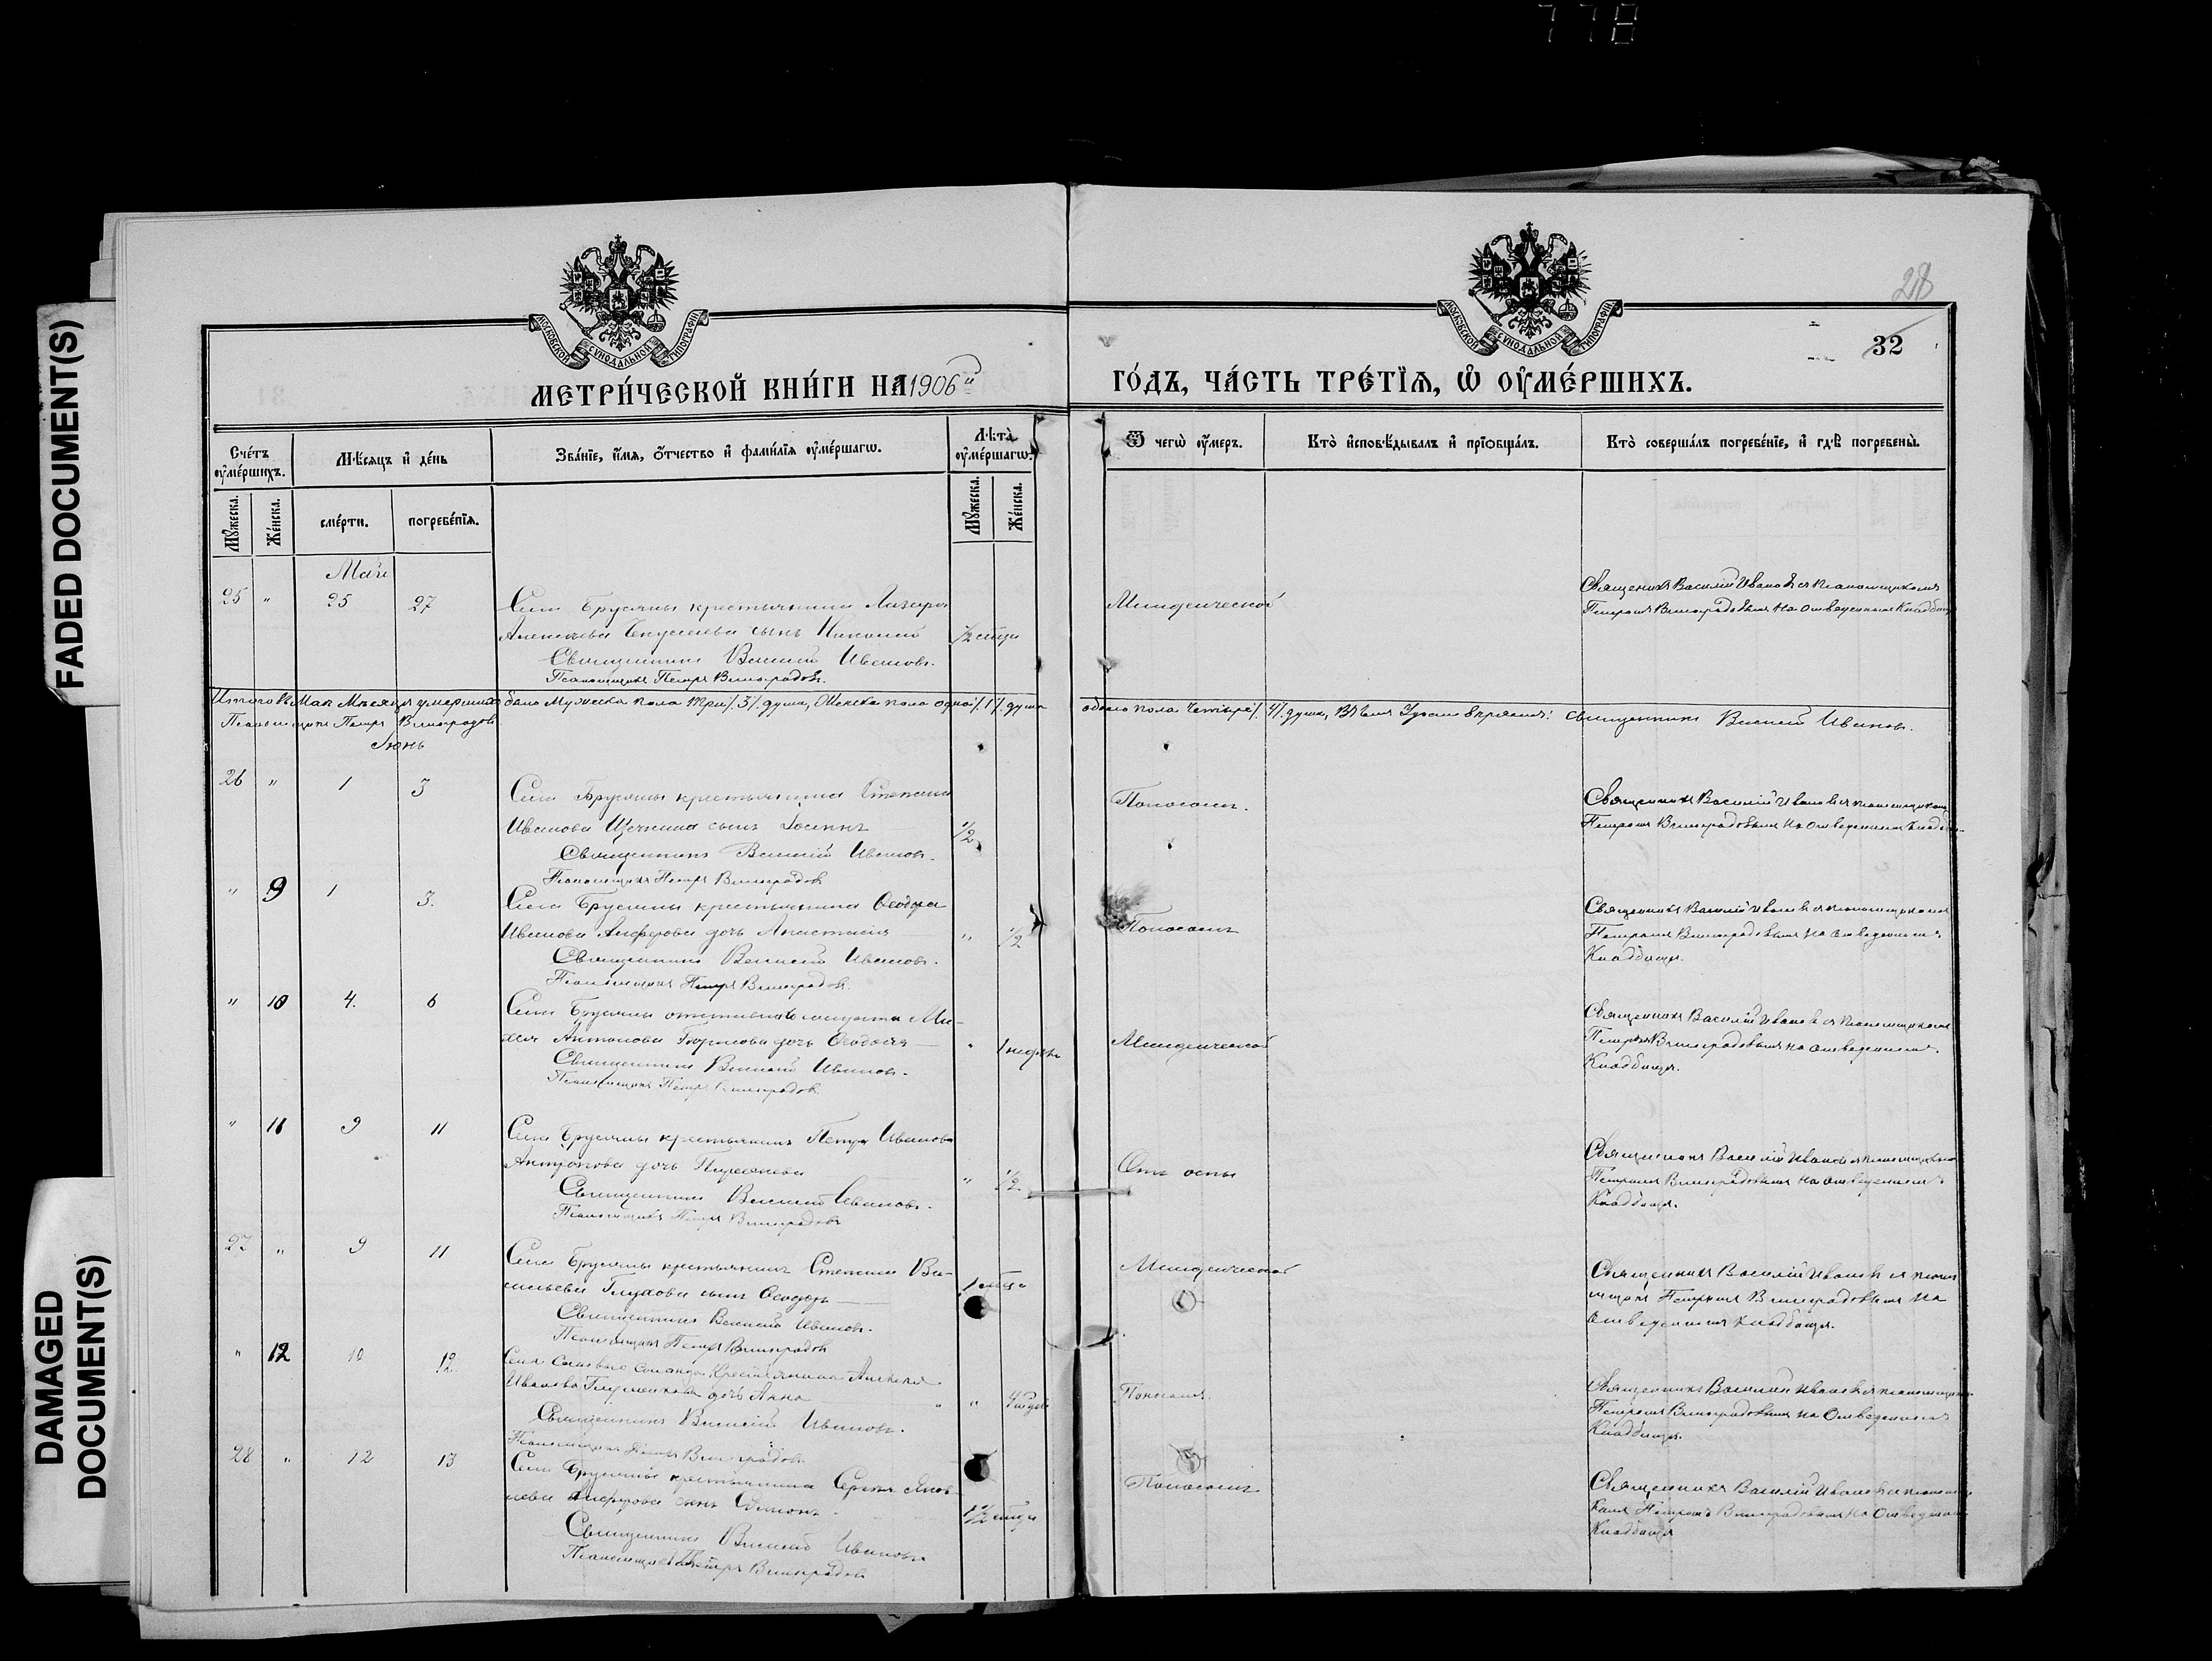 778
FADED DOCUMENT(S)
DAMAGED DOCUMENT(S)
МОСКОВСКОЙ СѴНОДАЛЬНОЙ ТИПОГРАФІИ
МЕТРИ́ЧЕСКОЙ КНИ́ГИ НА 1906й
МОСКОВСКОЙ СѴНОДАЛЬНОЙ ТИПОГРАФІИ
28
32
ГО́ДЪ, ЧА́СТЬ ТРЕ́ТІѦ, Ѽ ОУ҆МЕ́РШИХЪ.
Сче́тъ оу҆ме́ршихъ.
Мꙋ́жеска.
Же́нска.
Мѣ́сяцъ и҆ де́нь
сме́рти.
погребе́нїѧ.
Зва́нїе, и҆́мѧ, ѻ҆́тчество и҆ фами́лїѧ оу҆ме́ршагѡ.
Лѣ́та оу҆ме́ршагѡ.
Мꙋ́жеска.
Же́нска.
Ѿ чегѡ̀ оу҆́меръ.
Кто̀ и҆сповѣ́дывалъ и҆ прїѡбща́лъ.
Кто̀ соверша́лъ погребе́нїе, и҆ гдѣ̀ погребены̀.
Май
25 " 25 27 Села Брусяны крестьянина Лазаря
Алексѣева сынъ Николай 1/2 мѣсяца
Священникъ Василій Ивановъ.
Псаломщикъ Петръ Виноградовъ.
Младенческой
Священникъ Василій Ивановъ съ псаломщикомъ
Петромъ Виноградовымъ на отведенномъ Кладбищѣ
Итого въ Маѣ Мѣсяцѣ умершихъ было Мужеска пола три /.3/. души, Женска пола одна /.1/. душа
обоего пола четыре /.4/. души,
Священникъ Василій Ивановъ.
Псаломщикъ Петръ Виноградовъ
Іюнь
26 " 1 3 Села Брусяны крестьянина Степана
Иванова сынъ Іосифъ 1/2
Священникъ Василій Ивановъ.
Псаломщикъ Петръ Виноградовъ
Поносомъ.
Священникъ Василій Ивановъ съ псаломщикомъ
Петромъ Виноградовымъ на отведенномъ Кладбищѣ
" 9 1 3. Села Брусяны крестьянина Ѳеодора
Иванова Алферова дочь Анастасія " 1/2
Священникъ Василій Ивановъ.
Псаломщикъ Петръ Виноградовъ.
Поносомъ
Священникъ Василій Ивановъ съ псаломщикомъ
Петромъ Виноградовымъ на отведенномъ
Кладбищѣ.
" 10 4. 6 Села Брусяны
Антонова Борисова дочь Ѳеодосія " 1 недѣль
Священникъ Василій Ивановъ.
Псаломщикъ Петръ Виноградовъ
Младенческой
Священникъ Василій Ивановъ съ псаломщикомъ
Петромъ Виноградовымъ на отведенномъ
Кладбищѣ.
" 11 9 11 Села Брусяны крестьянина Петра Иванова
Антропова дочь " 1/2
Священникъ Василій Ивановъ.
Псаломщикъ Петръ Виноградовъ
Отъ оспы
Священникъ Василій Ивановъ съ псаломщикомъ
Петромъ Виноградовымъ на отведенномъ
Кладбищѣ.
27 " 9 11 Села Брусяны крестьянина Степана Ва-
сильева Глухова сынъ Ѳеодоръ 1 мѣсяца
Священникъ Василій Ивановъ.
Псаломщикъ Петръ Виноградовъ
Младенческой
Священникъ Василій Ивановъ съ псалом
щикомъ Петромъ Виноградовымъ на
отведенномъ кладбищѣ.
" 12 10 12. Села крестьянина Алексѣя
Иванова дочь Анна " 4 года
Священникъ Василій Ивановъ.
Псаломщикъ Петръ Виноградовъ
Поносомъ
Священникъ Василій Ивановъ съ псаломщикомъ
Петромъ Виноградовымъ на отведенномъ
Кладбищѣ.
28 " 12 13 Села Брусяны крестьянина Сергѣя Яков-
лева Алферова сынъ 1 1/2 мѣсяца
Священникъ Василій Ивановъ
Псаломщикъ Петръ Виноградовъ
Поносомъ
Священникъ Василій Ивановъ съ псаломщи-
комъ Петромъ Виноградовымъ на отведенномъ
Кладбищѣ